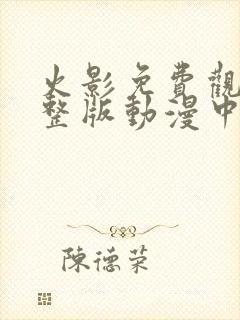 火影免費觀
整版動漫中
陳德荣